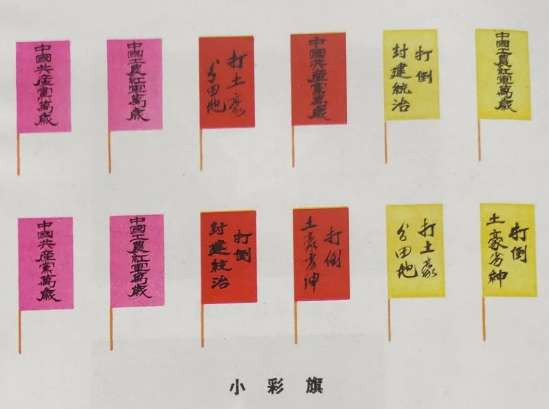 中國共産黨萬歲
中國工農紅軍萬歲
打土豪
分田地
中國共産黨萬歲
打倒
封建統治
中國工農紅軍萬歲
中國共産黨萬歲
中國工農紅軍萬歲
打倒
封建統治
打倒
土豪劣紳
打土豪
分田地
打倒
土豪劣紳
小彩旗